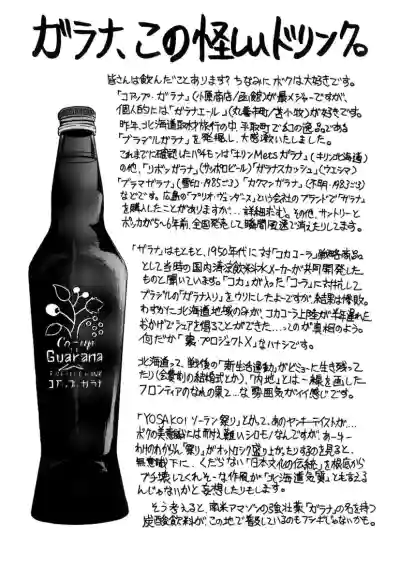 ガラナ、この怪しいドリンク。
皆さんは飲んだことあります? ちなみにボクは大好きです。
「コアップ・ガラナ」(小原商店/函館)が最メジャーですが、
個人的には「ガラナエール」(丸善市町/苫小牧)が好きです。
昨年、北海道取材旅行の中、平取町で幻の逸品である
「ブラヂルガラナ」を発掘し、大感激いたしました。
これまでに確認したバケモンは「キリンMetsガラナ」(キリン北海道)
の他、「リボンガラナ」(サッポロビール)「ガラナスカッシュ」(ウエシマ)
「プラマガラナ」(雪印・1985〜?)「カクマンガラナ」(不明・1983〜?)
などです。広島の「プリオ・ヴェンダース」という会社のブランドで「ガラナ」
を購入したことがありますが…詳細求む。その他、サントリーと
ポッカから5〜6年前、全国発売して瞬間風速で消えたりしてます。
「ガラナ」はもともと、1950年代に対「コカコーラ」戦略商品
として当時の国内清涼飲料水メーカーが共同開発した
ものと聞いています。「コカ」が入った「コーラ」に対抗して
ブラジルの「ガラナ入り」をウリにしたよーですが、結果は惨敗。
わずかに北海道地域のみが、コカコーラ上陸が半年遅れた
おかげでシェアを得ることができた……つーのが真相のよう。
何だか「裏・プロジェクトX」なハナシです。
北海道って、戦後の「新生活運動」がビミョーに生き残って
たり(会費制の結婚式とか)、「内地」とは一線を画した
フロンティアのなれの果て…な雰囲気がイイ感じです。
「YOSAKOIソーラン祭り」とかって、あのヤンキーテイストが…
ボクの美意識には耐え難いシロモノなんですが、あーゆー
わけのわからん「祭り」がオットロシク盛り上がったりするのを見ると、
無意識下に、くだらない「日本文化の伝統」を根底から
ブチ壊してくれそーな作風が「北海道気質」とも言える
んじゃないかと妄想したりもします。
そう考えると、南米アマゾンの強壮薬「ガラナ」の名を持つ
炭酸飲料が、この地で普及しているのもフシギじゃないかも。
Co-up
Guarana
コアップガラナ